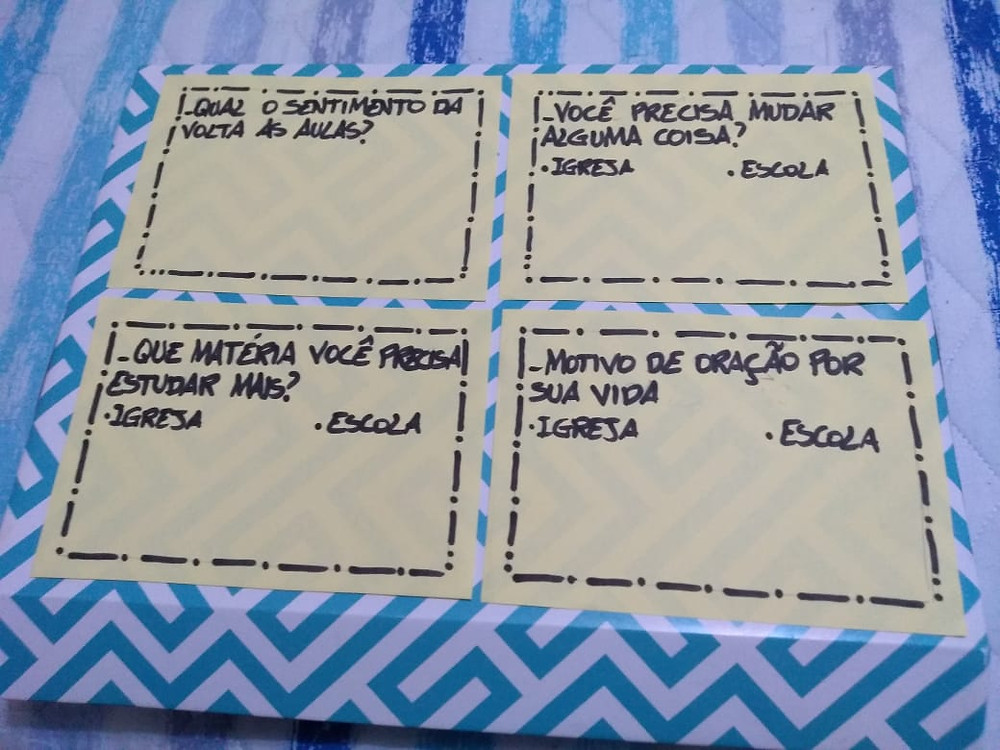 -QUAL O SENTIMENTO DA
VOLTA AS AULAS?
-VOCÊ PRECISA MUDAR
ALGUMA COISA?
•IGREJA •ESCOLA
-QUE MATÉRIA VOCÊ PRECISA
ESTUDAR MAIS?
•IGREJA •ESCOLA
-MOTIVO DE ORAÇÃO POR
SUA VIDA
•IGREJA •ESCOLA